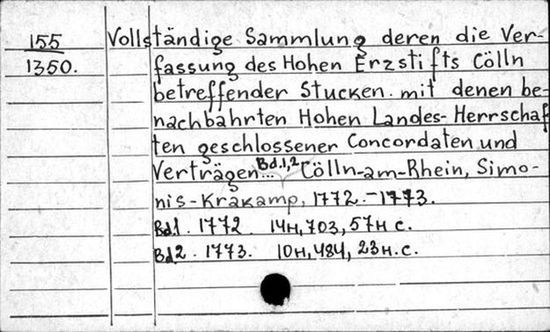 155 Vollständige Sammlung deren die Ver-
1350. fassung des Hohen Erzstifts Cölln
betreffender Stucken. mit denen be-
nachbahrten Hohen Landes-Herrschaf
ten geschlossener Concordaten und
Verträgen... Bd.1,2 Cölln-am-Rhein, Simo-
nis-Krakamp, 1772.-1773.
Bd1. 1772. 14н, 703, 57н с.
Bd2. 1773. 10н, 484, 23н.с.